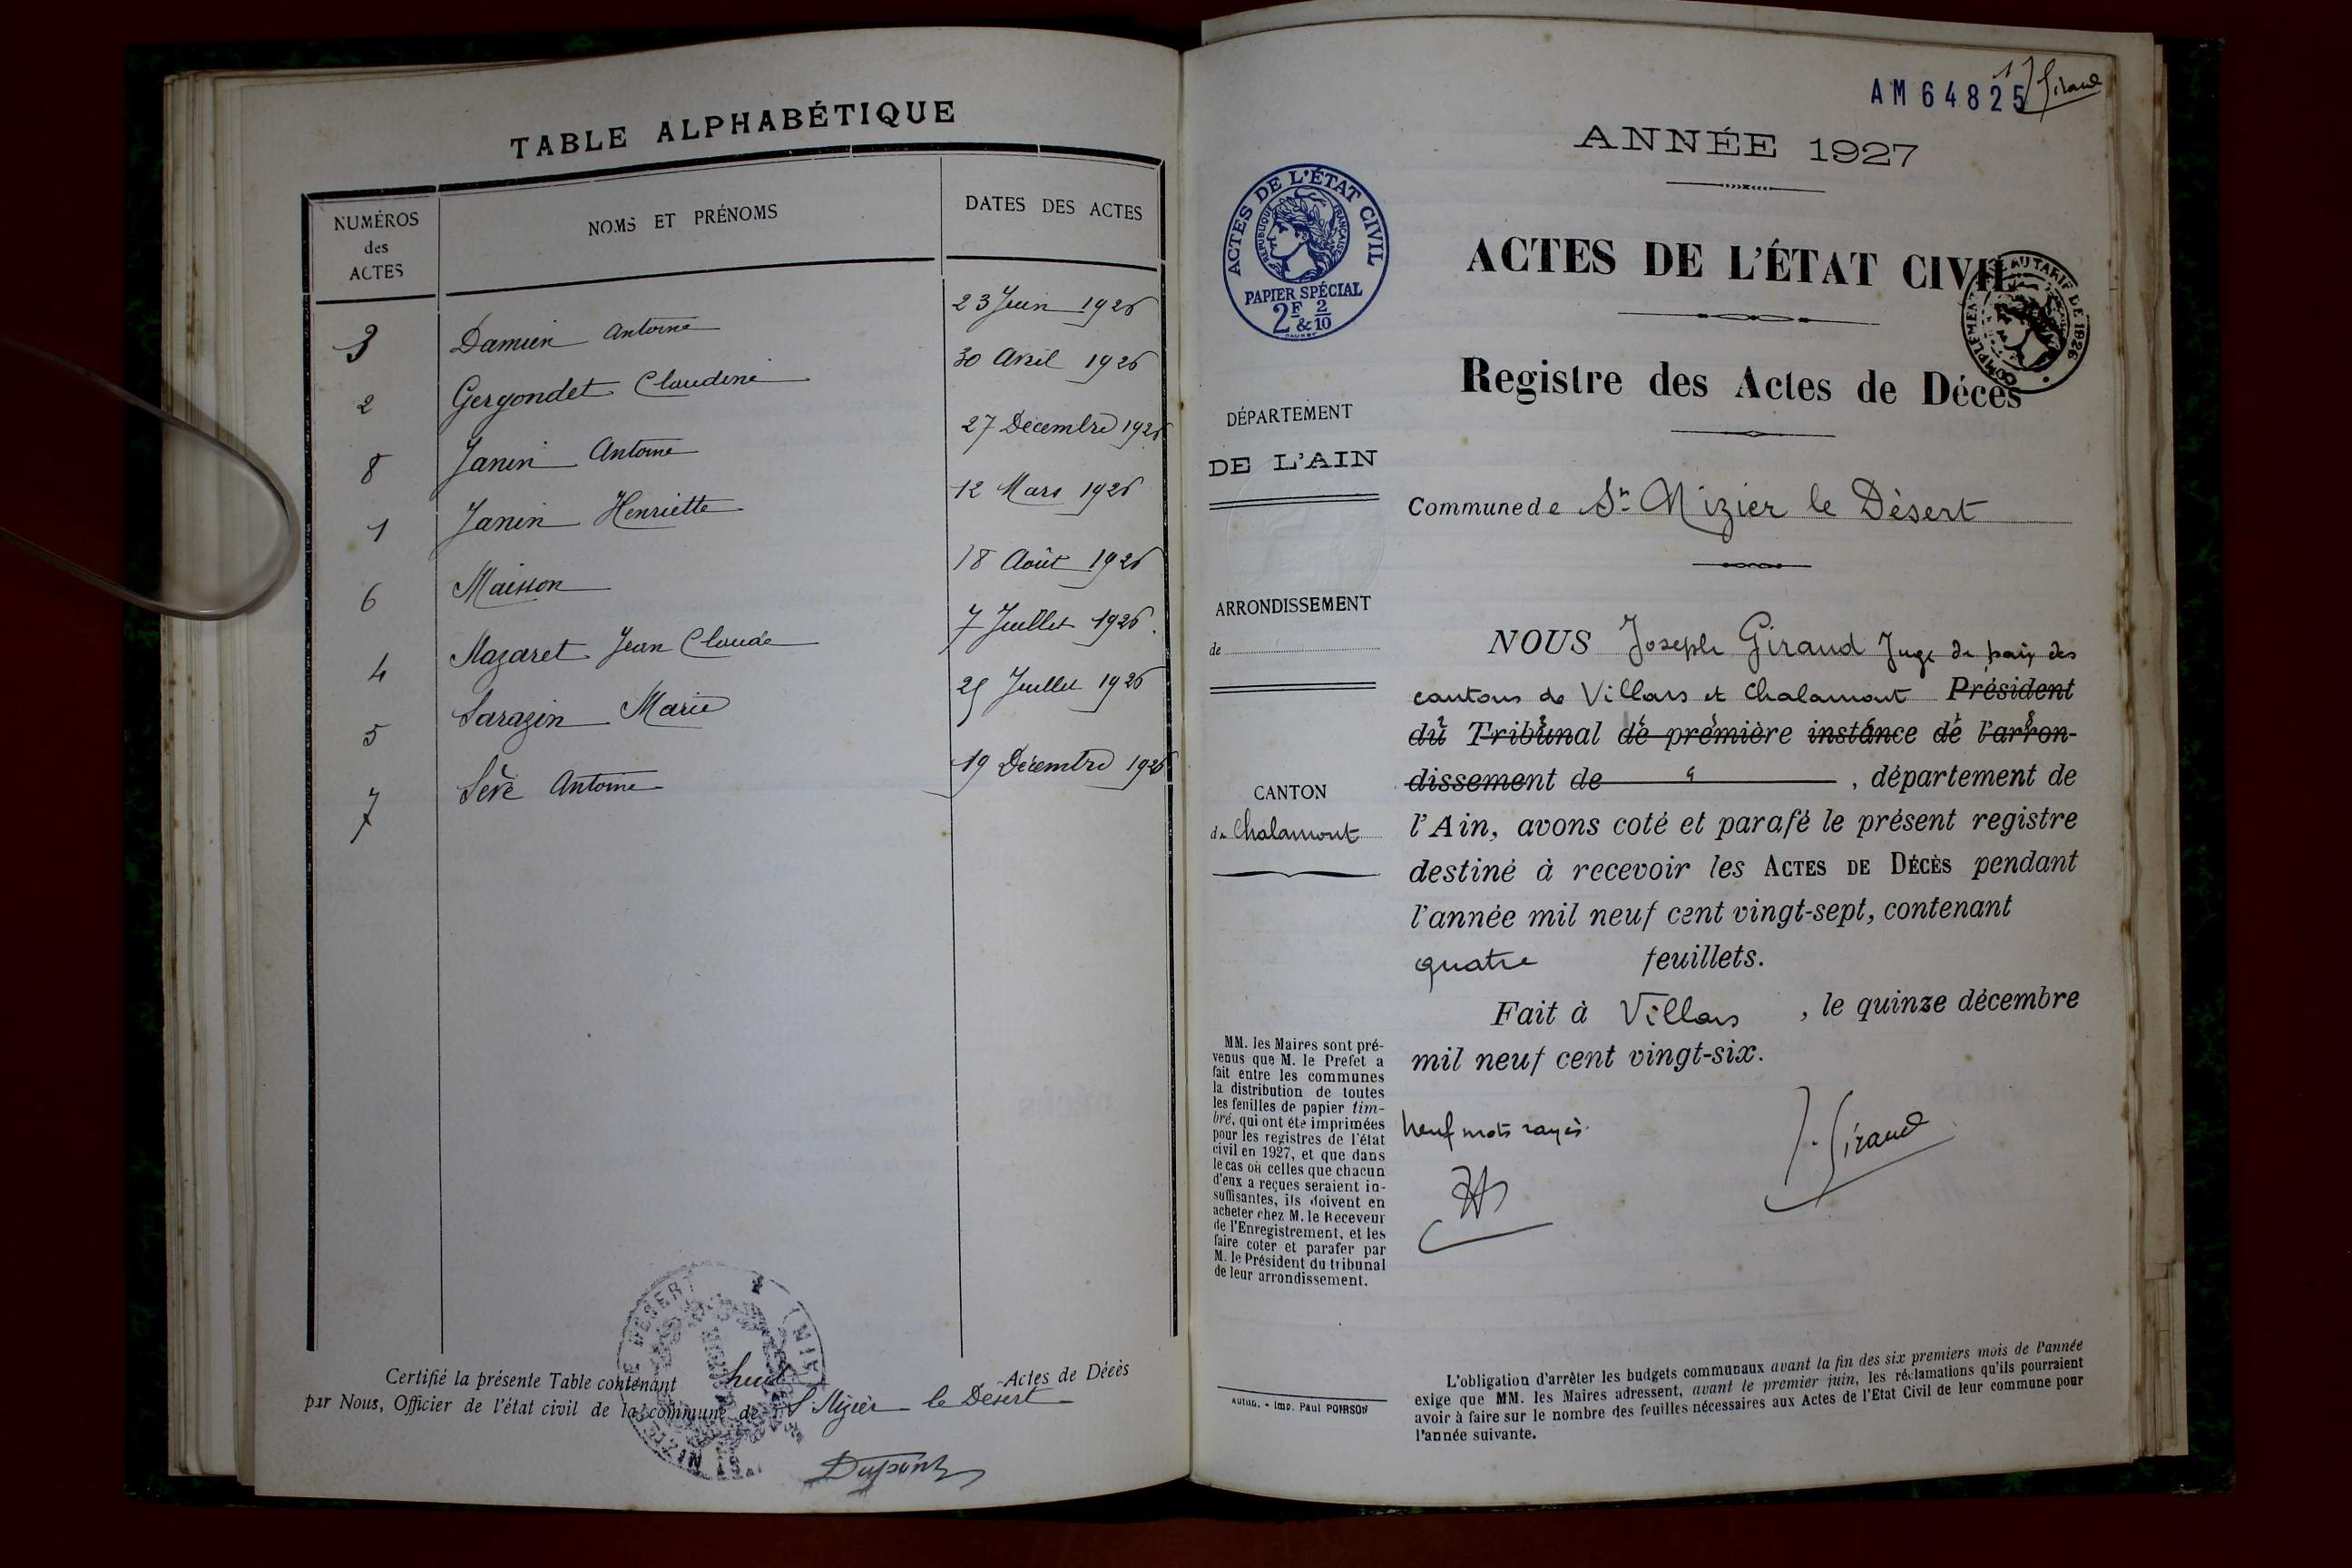 TABLE ALPHABÉTIQUE
NUMÉROS des ACTES
NOMS ET PRÉNOMS
DATES DES ACTES
3 Damien Antoine 23 Juin 1926
2 Gergondet Claudine 30 Avril 1926
8 Janin Antoine 27 Décembre 1926
1 Janin Henriette 12 Mars 1926
6 Maisson 18 Août 1926
4 Nazaret Jean Claude 7 Juillet 1926
5 Sarazin Marie 25 Juillet 1926
7 Sève Antoine 19 Décembre 1926
Certifié la présente Table contenant huit Actes de Décès
par Nous, Officier de l'état civil de la commune de St Nizier le Désert
Dupont
AM 64825
1 J Giraud
ANNÉE 1927
ACTES DE L'ÉTAT CIVIL
RÉPUBLIQUE FRANÇAISE
PAPIER SPÉCIAL
2F & 2/10
ACTES DE L'ÉTAT CIVIL
COMPLÉMENT AU TARIF DE 1926
Registre des Actes de Décès
DÉPARTEMENT
DE L'AIN
Commune de St Nizier le Désert
ARRONDISSEMENT
de
CANTON
de Chalamont
NOUS Joseph Giraud Juge de paix des
cantons de Villars et Chalamont Président
du Tribunal de première instance de l'arron-
dissement de , département de
l'Ain, avons coté et parafé le présent registre
destiné à recevoir les ACTES DE DÉCÈS pendant
l'année mil neuf cent vingt-sept, contenant
quatre feuillets.
Fait à Villars , le quinze décembre
mil neuf cent vingt-six.
Neuf mots rayés.
J. Giraud
MM. les Maires sont pré-
venus que M. le Préfet a
fait entre les communes
la distribution de toutes
les feuilles de papier tim-
bré, qui ont été imprimées
pour les registres de l'état
civil en 1927, et que dans
le cas où celles que chacun
d'eux a reçues seraient in-
suffisantes, ils doivent en
acheter chez M. le Receveur
de l'Enregistrement, et les
faire coter et parafer par
M. le Président du tribunal
de leur arrondissement.
Autun. - Imp. Paul POIRSON
L'obligation d'arrêter les budgets communaux avant la fin des six premiers mois de l'année
exige que MM. les Maires adressent, avant le premier juin, les réclamations qu'ils pourraient
avoir à faire sur le nombre des feuilles nécessaires aux Actes de l'Etat Civil de leur commune pour
l'année suivante.